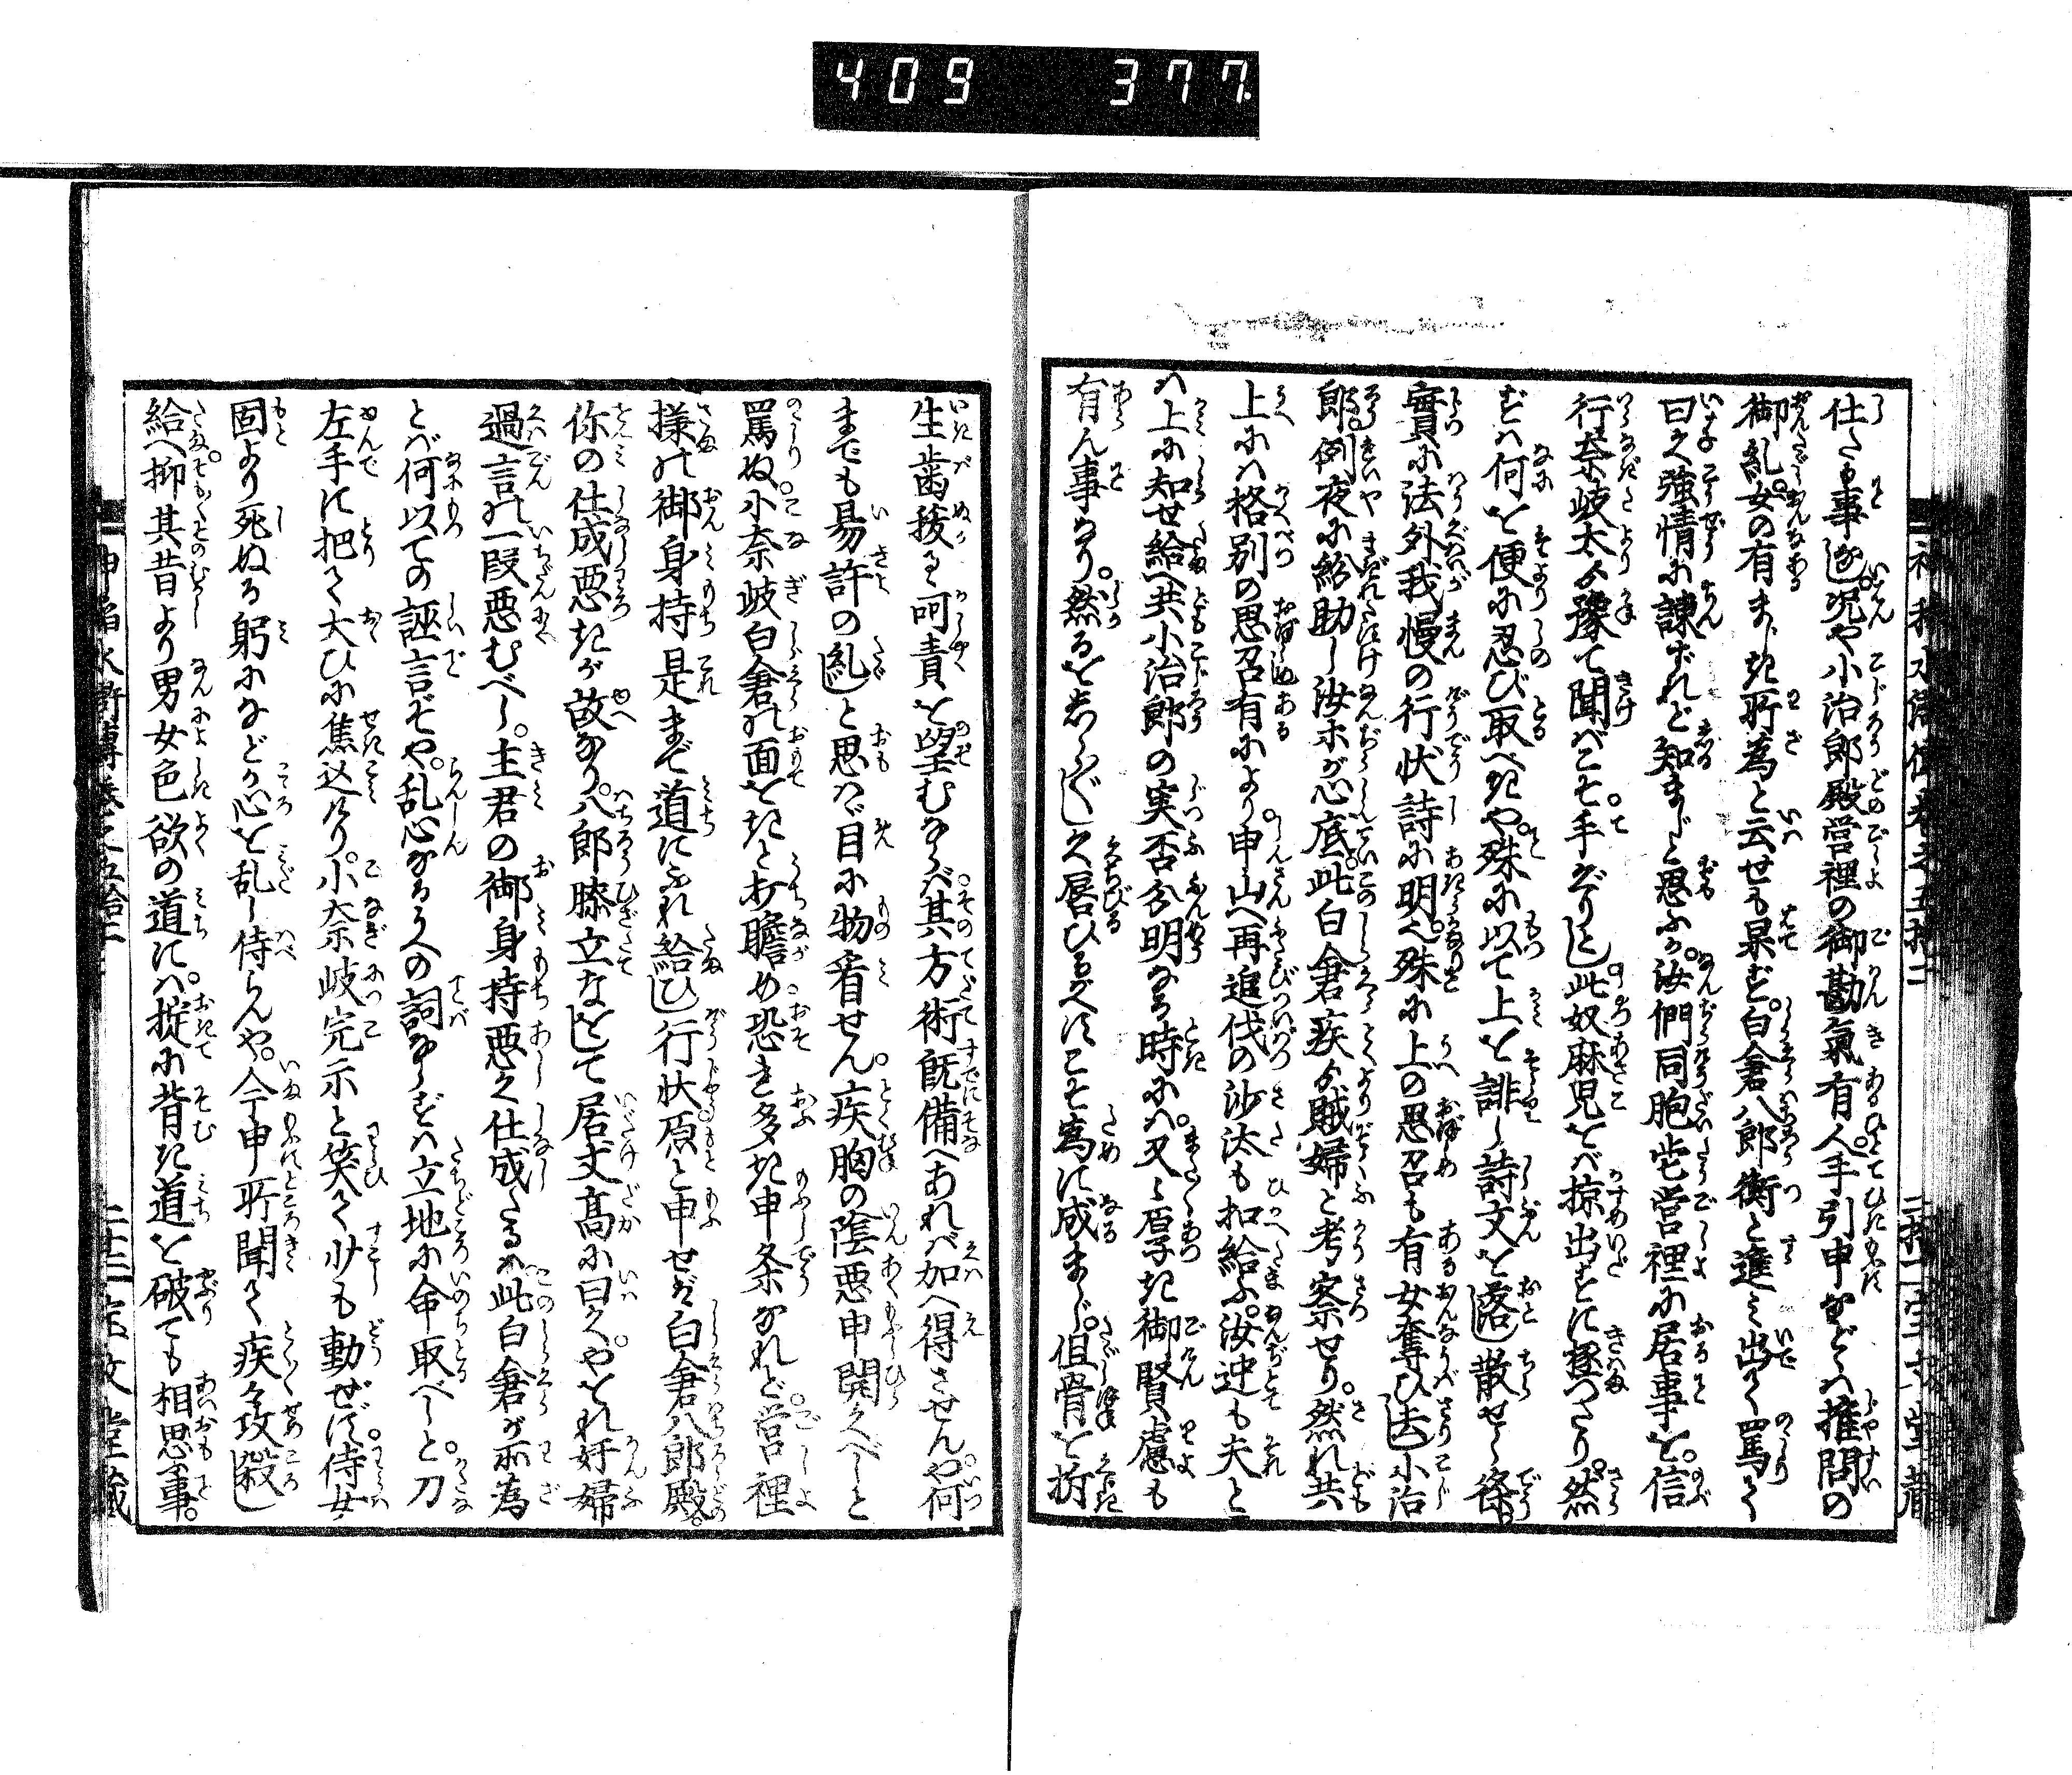 409 377
仕たる事なし。況や小治郎殿営裡の御勘氣有人。手引申などゝハ推問の
御乱。女の有まじき所為と云せも果ず。白倉八郎衝と進み出て罵りて
曰く強情に諫ずれど知まじと思ふか。汝們同胞此営裡に居事を。信
行奈岐太より豫て聞けばこそ。手がゝりとし此奴麻児をバ掠出すに極つたり。然
ずハ何を便に忍び取べきや。殊に以て上を誹し詩文を落し散せし條
實に法外我慢の行状詩に明く。殊に上の思召も有女奪ひ去し小治
郎。例夜に紛助し汝等が心底。此白倉疾より賊婦と考察せり。然れ共
上にハ格別の思召有により。申山へ再追伐の沙汰も扣給ふ。汝迚も夫と
ハ上に知せ給へ共小治郎の実否分明なる時にハ。又々厚き御賢慮も
有ん事なり。然るを あしく唇ひるがへすこそ為に成まじ。但骨を折
生歯抜る呵責を望むならバ。其方術既備へあれバ加へ得させんや。何
までも易許の乱しと思ハず目に物看せん。疾胸の陰悪申開くべしと
罵ぬ。小奈岐白倉の面をきと打瞻め恐き多き申条なれど。営裡
様の御身持是まで道にふれ給ひし行状原と申せば白倉八郎殿。
你の仕成悪きが故なり。八郎膝立なをして居丈高に曰く。やをれ奸婦
過言の一段悪むべし。主君の御身持悪く仕成たるハ此白倉が所為
とバ何以ての誣言ぞや。乱心かるうへの詞ならずハ立地に命取べしと。刀
左手に把て大ひに焦込けり。小奈岐完示と笑て少も動ぜず。侍女
固より死ぬる躬になどか心を乱し侍らんや。今申所聞て疾々攻殺し
給へ抑其昔より男女色欲の道にハ。掟に背き道を破ても相思事。